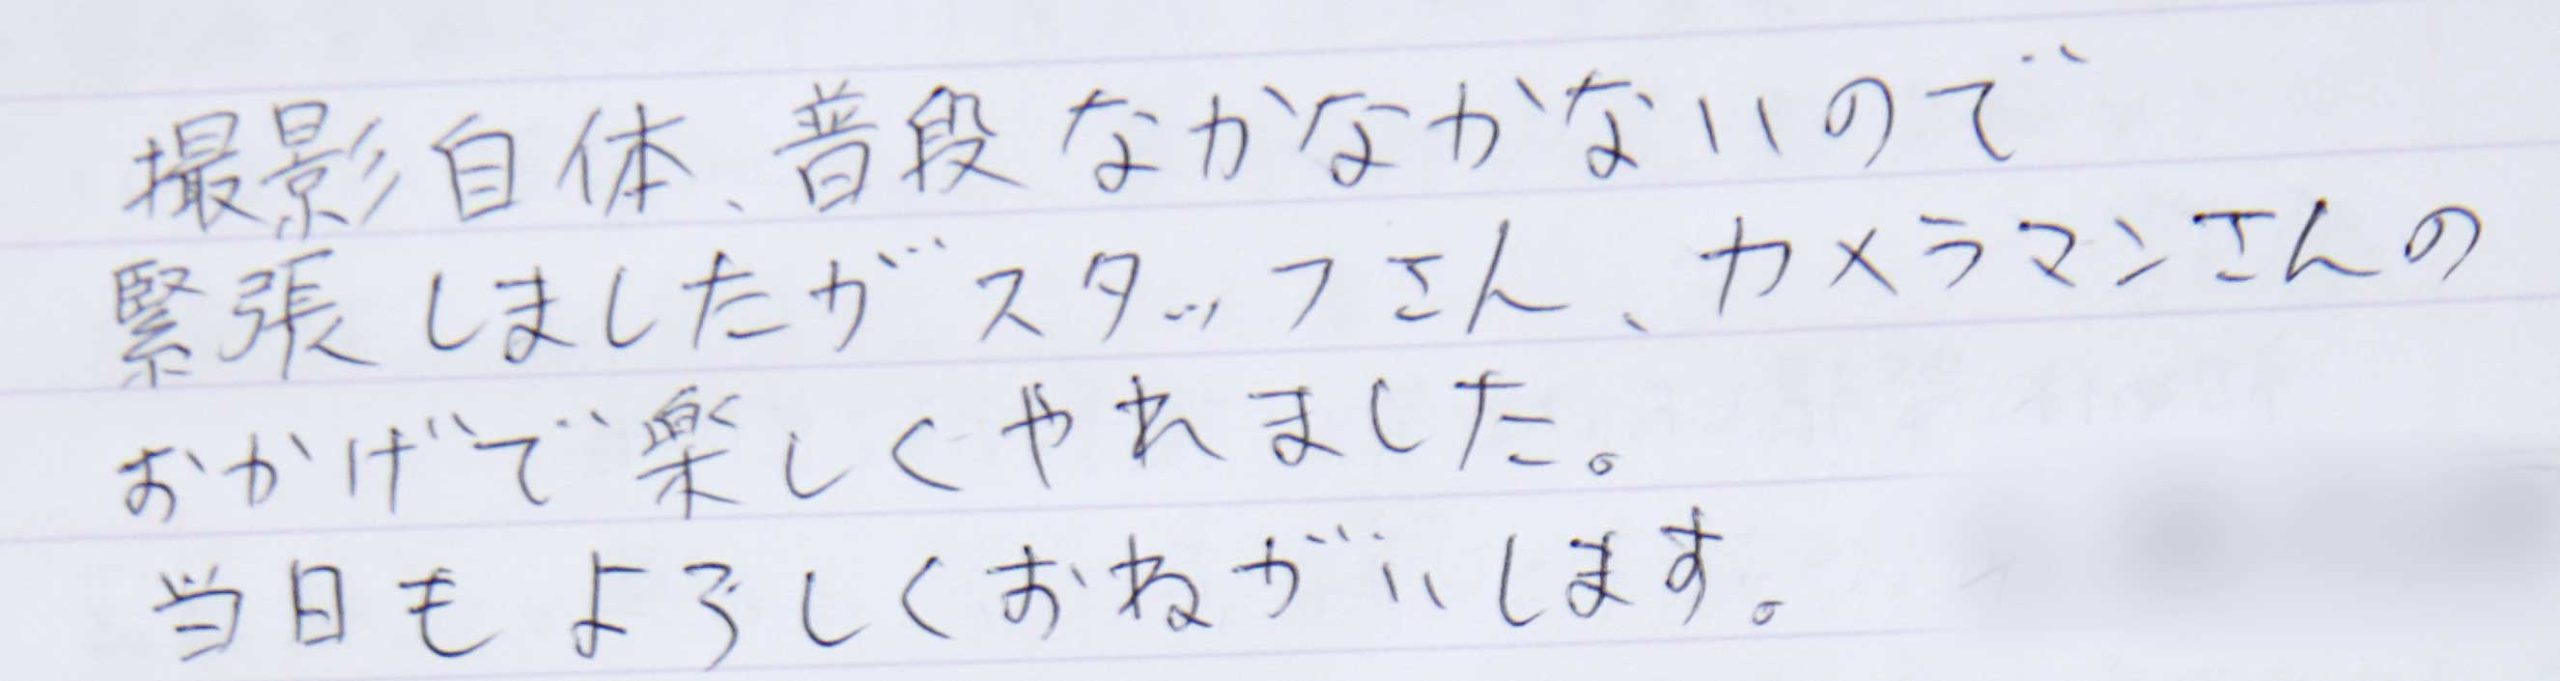 撮影自体、普段なかなかないので
緊張しましたがスタッフさん、カメラマンさんの
おかげで楽しくやれました。
当日もよろしくおねがいします。